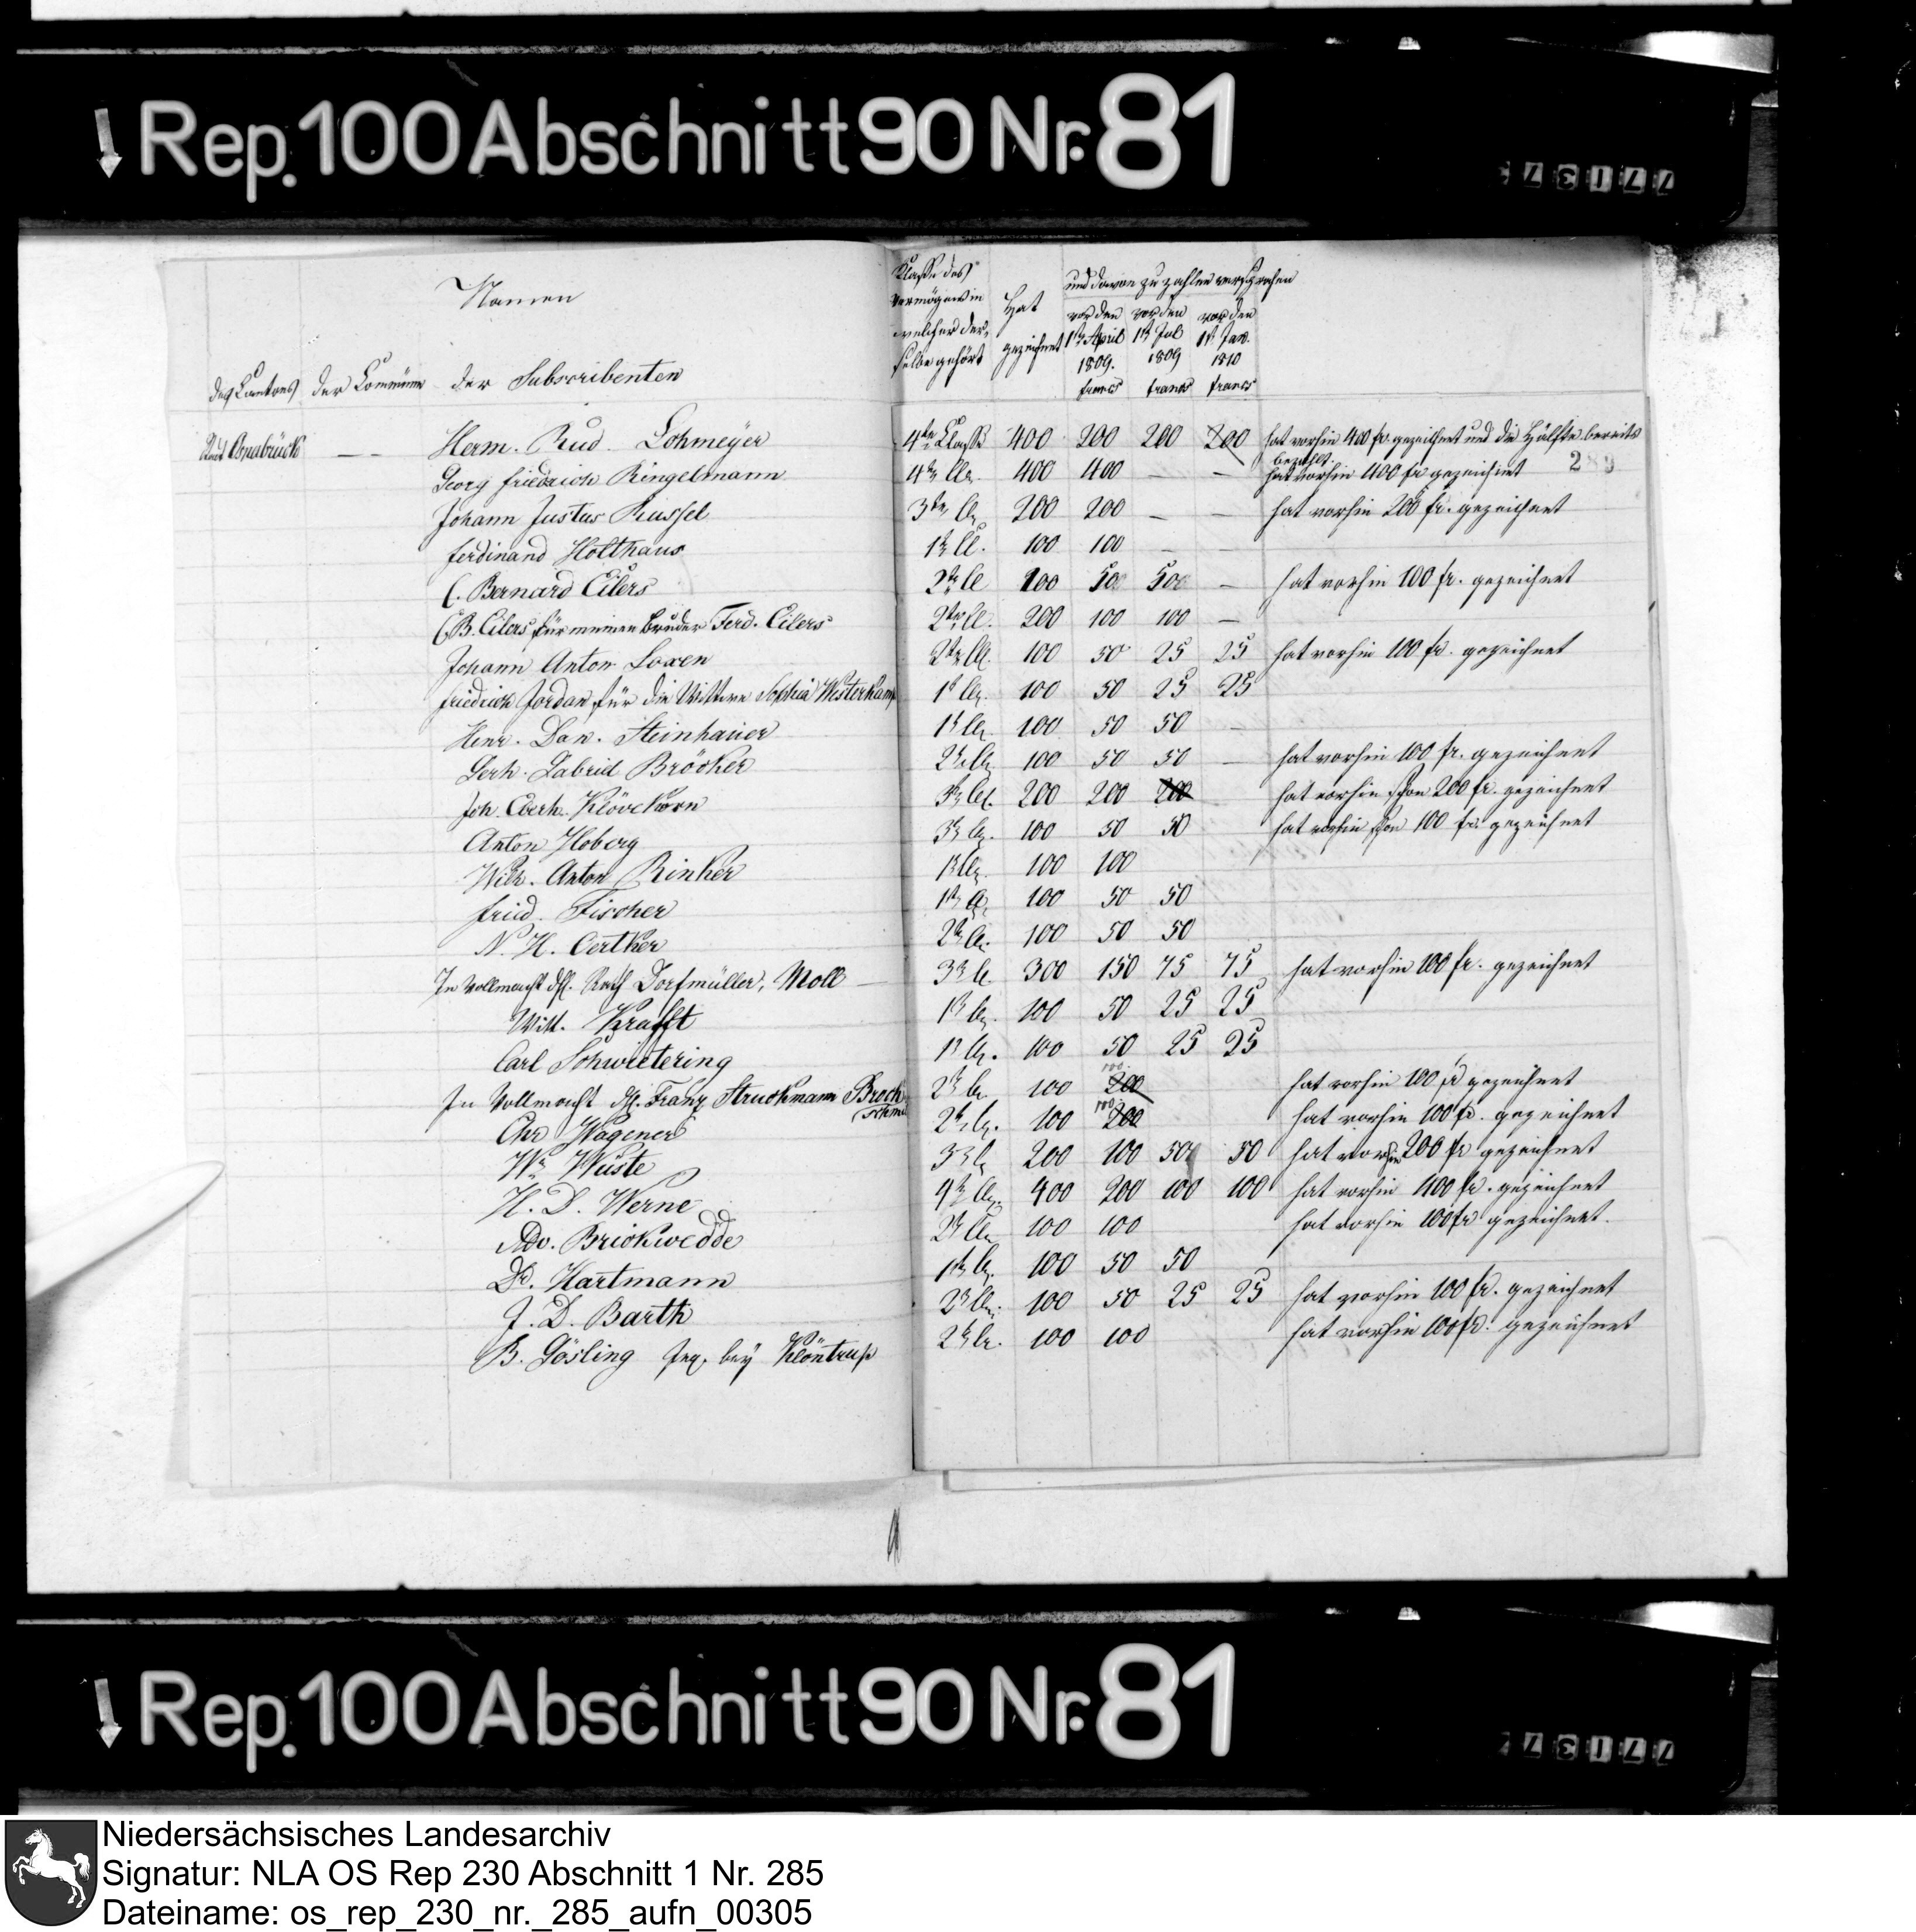 Rep. 100 Abschnitt 90 Nr. 81
Namen
des Cantons der Commüne der Subscribenten
Klasse des
Vermögens in
welcher der-
selbe gehört
Hat
gezeichnet
und davon zu zahlen versprochen
vor den 1ten April 1809. francs
vor den 1t Jul 1809 francs
vor den 1t Jan. 1810 francs
Stadt Osnabrück — — Herm. Rud. Lohmeÿer 4te Classe 400 200 200 200 hat vorhin 400 fr. gezeichnet und die Hälfte bereits
bezahlt.
Georg Friedrich Ringelmann 4te Cl. 400 400 — — hat vorhin 400 fr gezeichnet
Johann Justus Russel 3te Cl. 200 200 — — hat vorhin 200 fr. gezeichnet
Ferdinand Holthaus 1te Cl. 100 100 — —
C. Bernard Eilers 2te Cl 100 50 50 — hat vorhin 100 fr. gezeichnet
C. B. Eilers für meinen Bruder Ferd. Eilers 2te Cl. 200 100 100 —
Johann Anton Loxen 2te Cl. 100 50 25 25 hat vorhin 100 fr. gezeichnet
Friedrich Jordan für die Wittwe Sophia Westerkamp 1t Cl. 100 50 25 25
Henr. Dan. Steinhauer 1t Cl. 100 50 50 —
Gerh. Gabriel Bröcker 2te Cl. 100 50 50 — hat vorhin 100 fr. gezeichnet
Joh. Eberh. Klövekorn 3te Cl. 200 200 200 hat vorhin schon 200 fr. gezeichnet
Anton Hoberg 3te Cl. 100 50 50 hat vorhin schon 100 fr. gezeichnet
Wilh. Anton Rinker 1t Cl. 100 100
Fried. Fischer 1te Cl. 100 50 50
N. H. Oertker 2te Cl. 100 50 50
In Vollmacht des H. Rath Dorfmüller, Moll — 3te Cl. 300 150 75 75 hat vorhin 100 fr. gezeichnet
Witt. Krafft 1t Cl. 100 50 25 25
Carl Schwietering 1t Cl. 100 50 25 25
In Vollmacht des H. Franz Struckmann Brock 2te Cl. 100 200 100 hat vorhin 100 fr gezeichnet
Chr Wagener 2te Cl. 100 200 100 hat vorhin 100 fr. gezeichnet
Wr. Wüste 3te Cl 200 100 50 50 hat vorhin 200 fr gezeichnet
H. D. Werne 4te Cl. 400 200 100 100 hat vorhin 400 fr. gezeichnet
Adv. Brickwedde 2te Cl. 100 100 hat vorhin 100 fr gezeichnet.
Dr. Hartmann 1te Cl. 100 50 50
J. D. Barth 2te Cl. 100 50 25 25 hat vorhin 100 fr. gezeichnet
B. Gösling bey Klöntrup 2te Cl. 100 100 hat vorhin 100 fr. gezeichnet
Rep. 100 Abschnitt 90 Nr. 81
Niedersächsisches Landesarchiv
Signatur: NLA OS Rep 230 Abschnitt 1 Nr. 285
Dateiname: os_rep_230_nr._285_aufn_00305